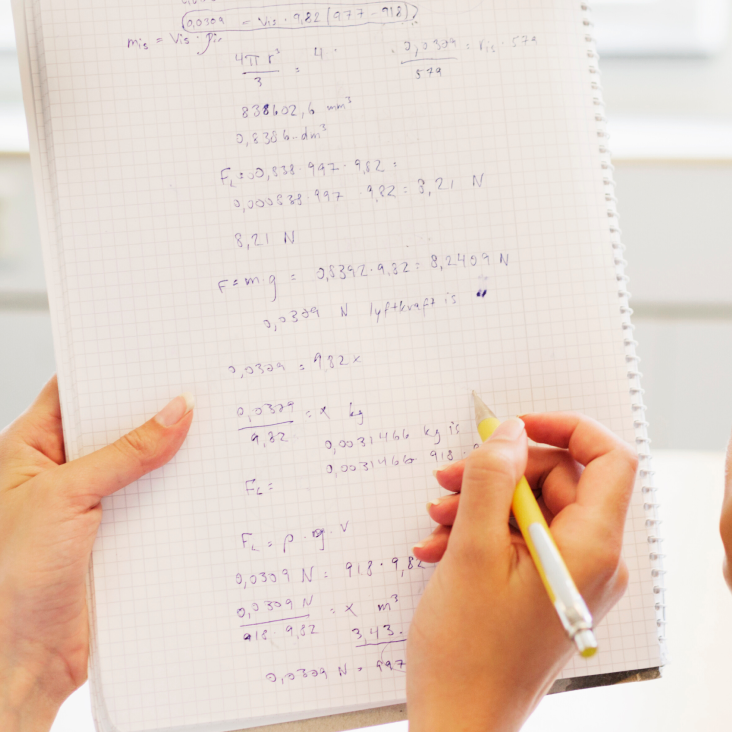 0,0309 = Vis · 9,82 (977 - 918)
mis = Vis · ρis
4πr³ / 3 = 4
0,0309 / 579 = Vis · 579
838602,6 mm³
0,8386 dm³
F_L = 0,838 · 997 · 9,82 =
0,000838 · 997 9,82 = 8,21 N
8,21 N
F = m · g = 0,8392 · 9,82 = 8,2409 N
0,0309 N lyftkraft is
0,0309 = 9,82x
0,0309 / 9,82 = x kg
0,0031466 kg is
0,0031466 918 ·
F_L =
F_L = ρ · g · V
0,0309 N = 918 · 9,82
0,0309 N / 918 · 9,82 = x m³
3,43 ·
0,0309 N = 997